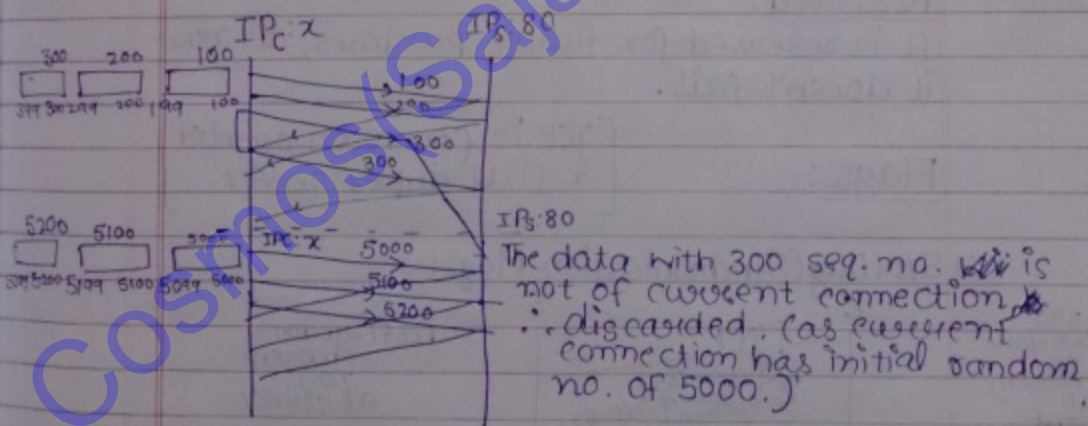 IPc:x IPs:80
300 200 100
399 300 299 200 199 100
100
200
300
300
IPs:80
IPc:x
5200 5100
5199 5100 5099 5000
5000
5100
5200
The data with 300 seq. no. is
not of current connection
∴ discarded. (as current
connection has initial random
no. of 5000.)
Cosmos/Saj